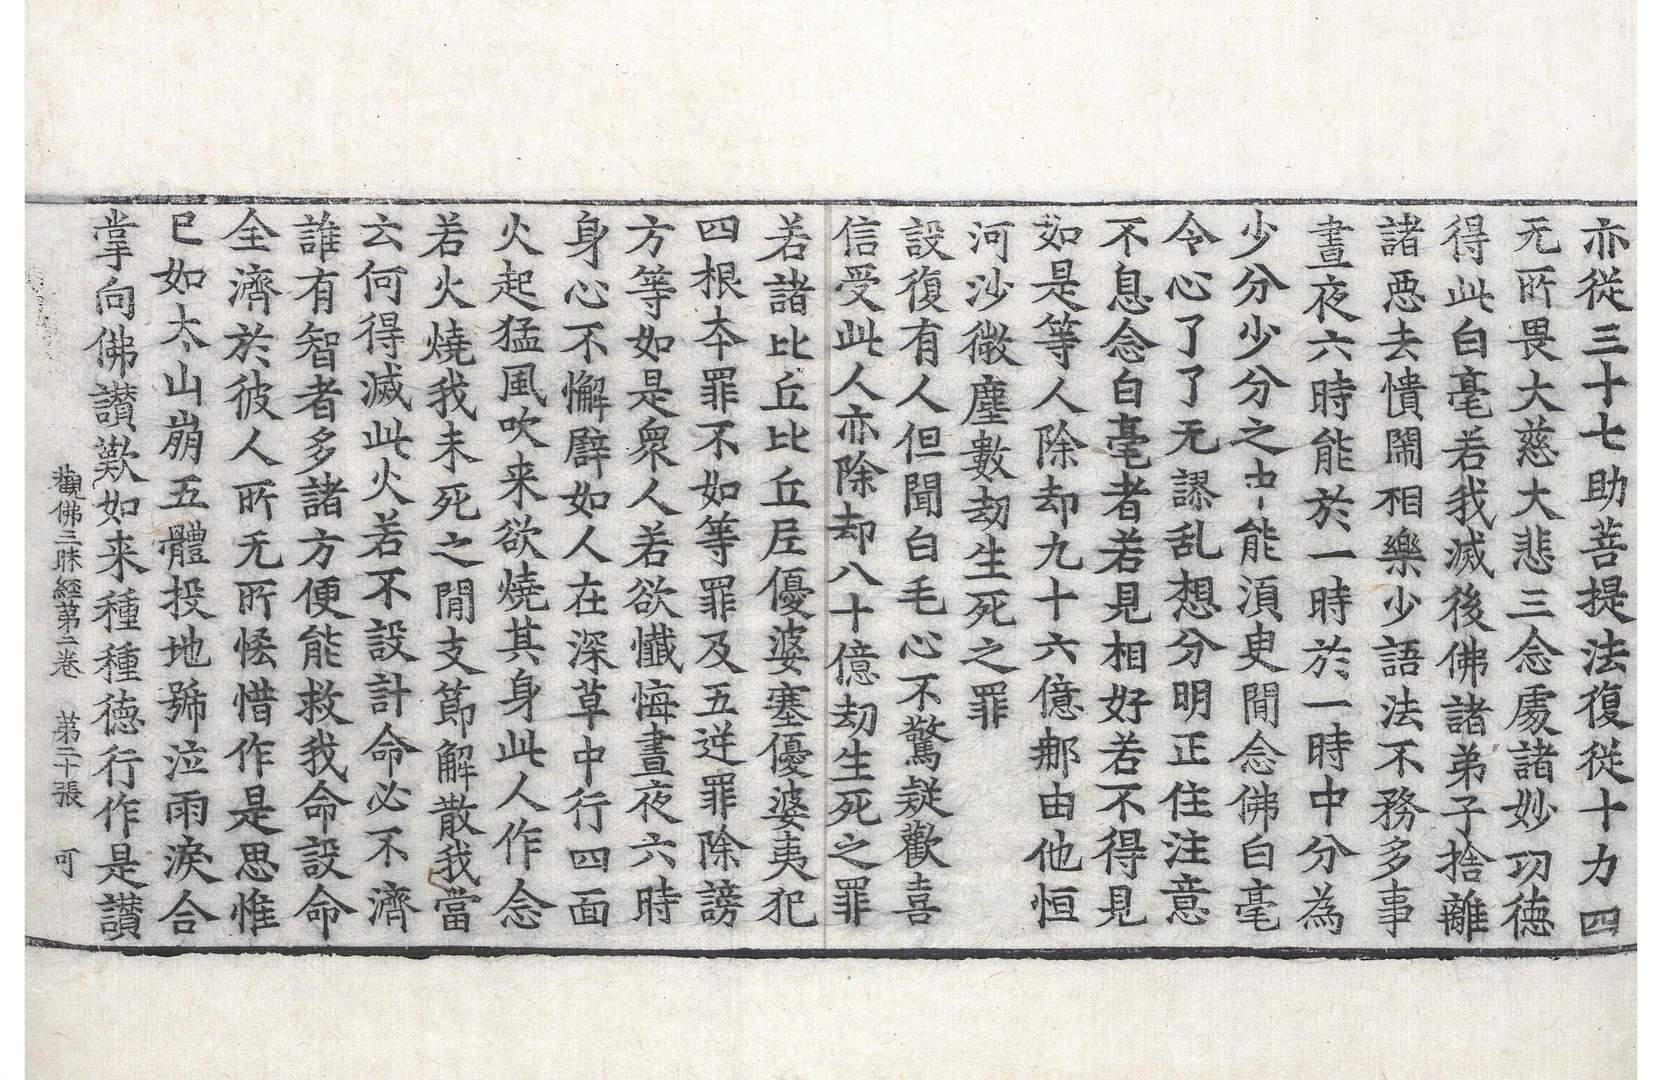 亦從三十七助菩提法復從十力四
无所畏大慈大悲三念處諸妙功德
得此白毫若我滅後佛諸弟子捨離
諸惡去憒閙相樂少語法不務多事
晝夜六時能於一時於一時中分為
少分少分之中能須臾間念佛白毫
令心了了无謬乱想分明正住注意
不息念白毫者若見相好若不得見
如是等人除却九十六億那由他恒
河沙微塵數劫生死之罪
設復有人但聞白毛心不驚疑歡喜
信受此人亦除却八十億劫生死之罪
若諸比丘比丘尼優婆塞優婆夷犯
四根本罪不如等罪及五逆罪除謗
方等如是衆人若欲懺悔晝夜六時
身心不懈譬如人在深草中行四面
火起猛風吹来欲燒其身此人作念
若火燒我未死之間支莭解散我當
云何得滅此火若不設計命必不濟
誰有智者多諸方便能救我命設命
全濟於彼人所无所恡惜作是思惟
已如太山崩五體投地號泣雨淚合
掌向佛讃歎如来種種德行作是讃
觀佛三昧經第二卷 第二十張 可